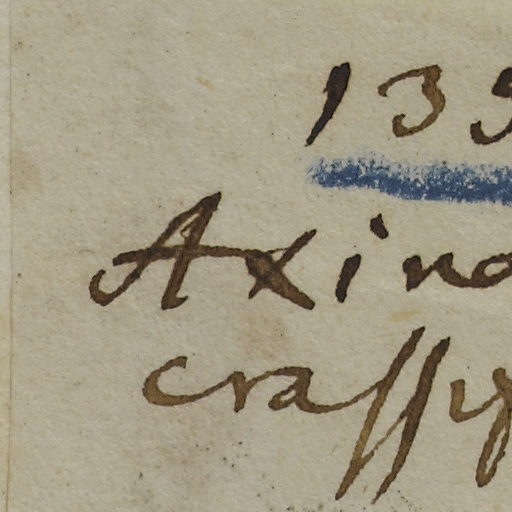 139
Axino
craſſy